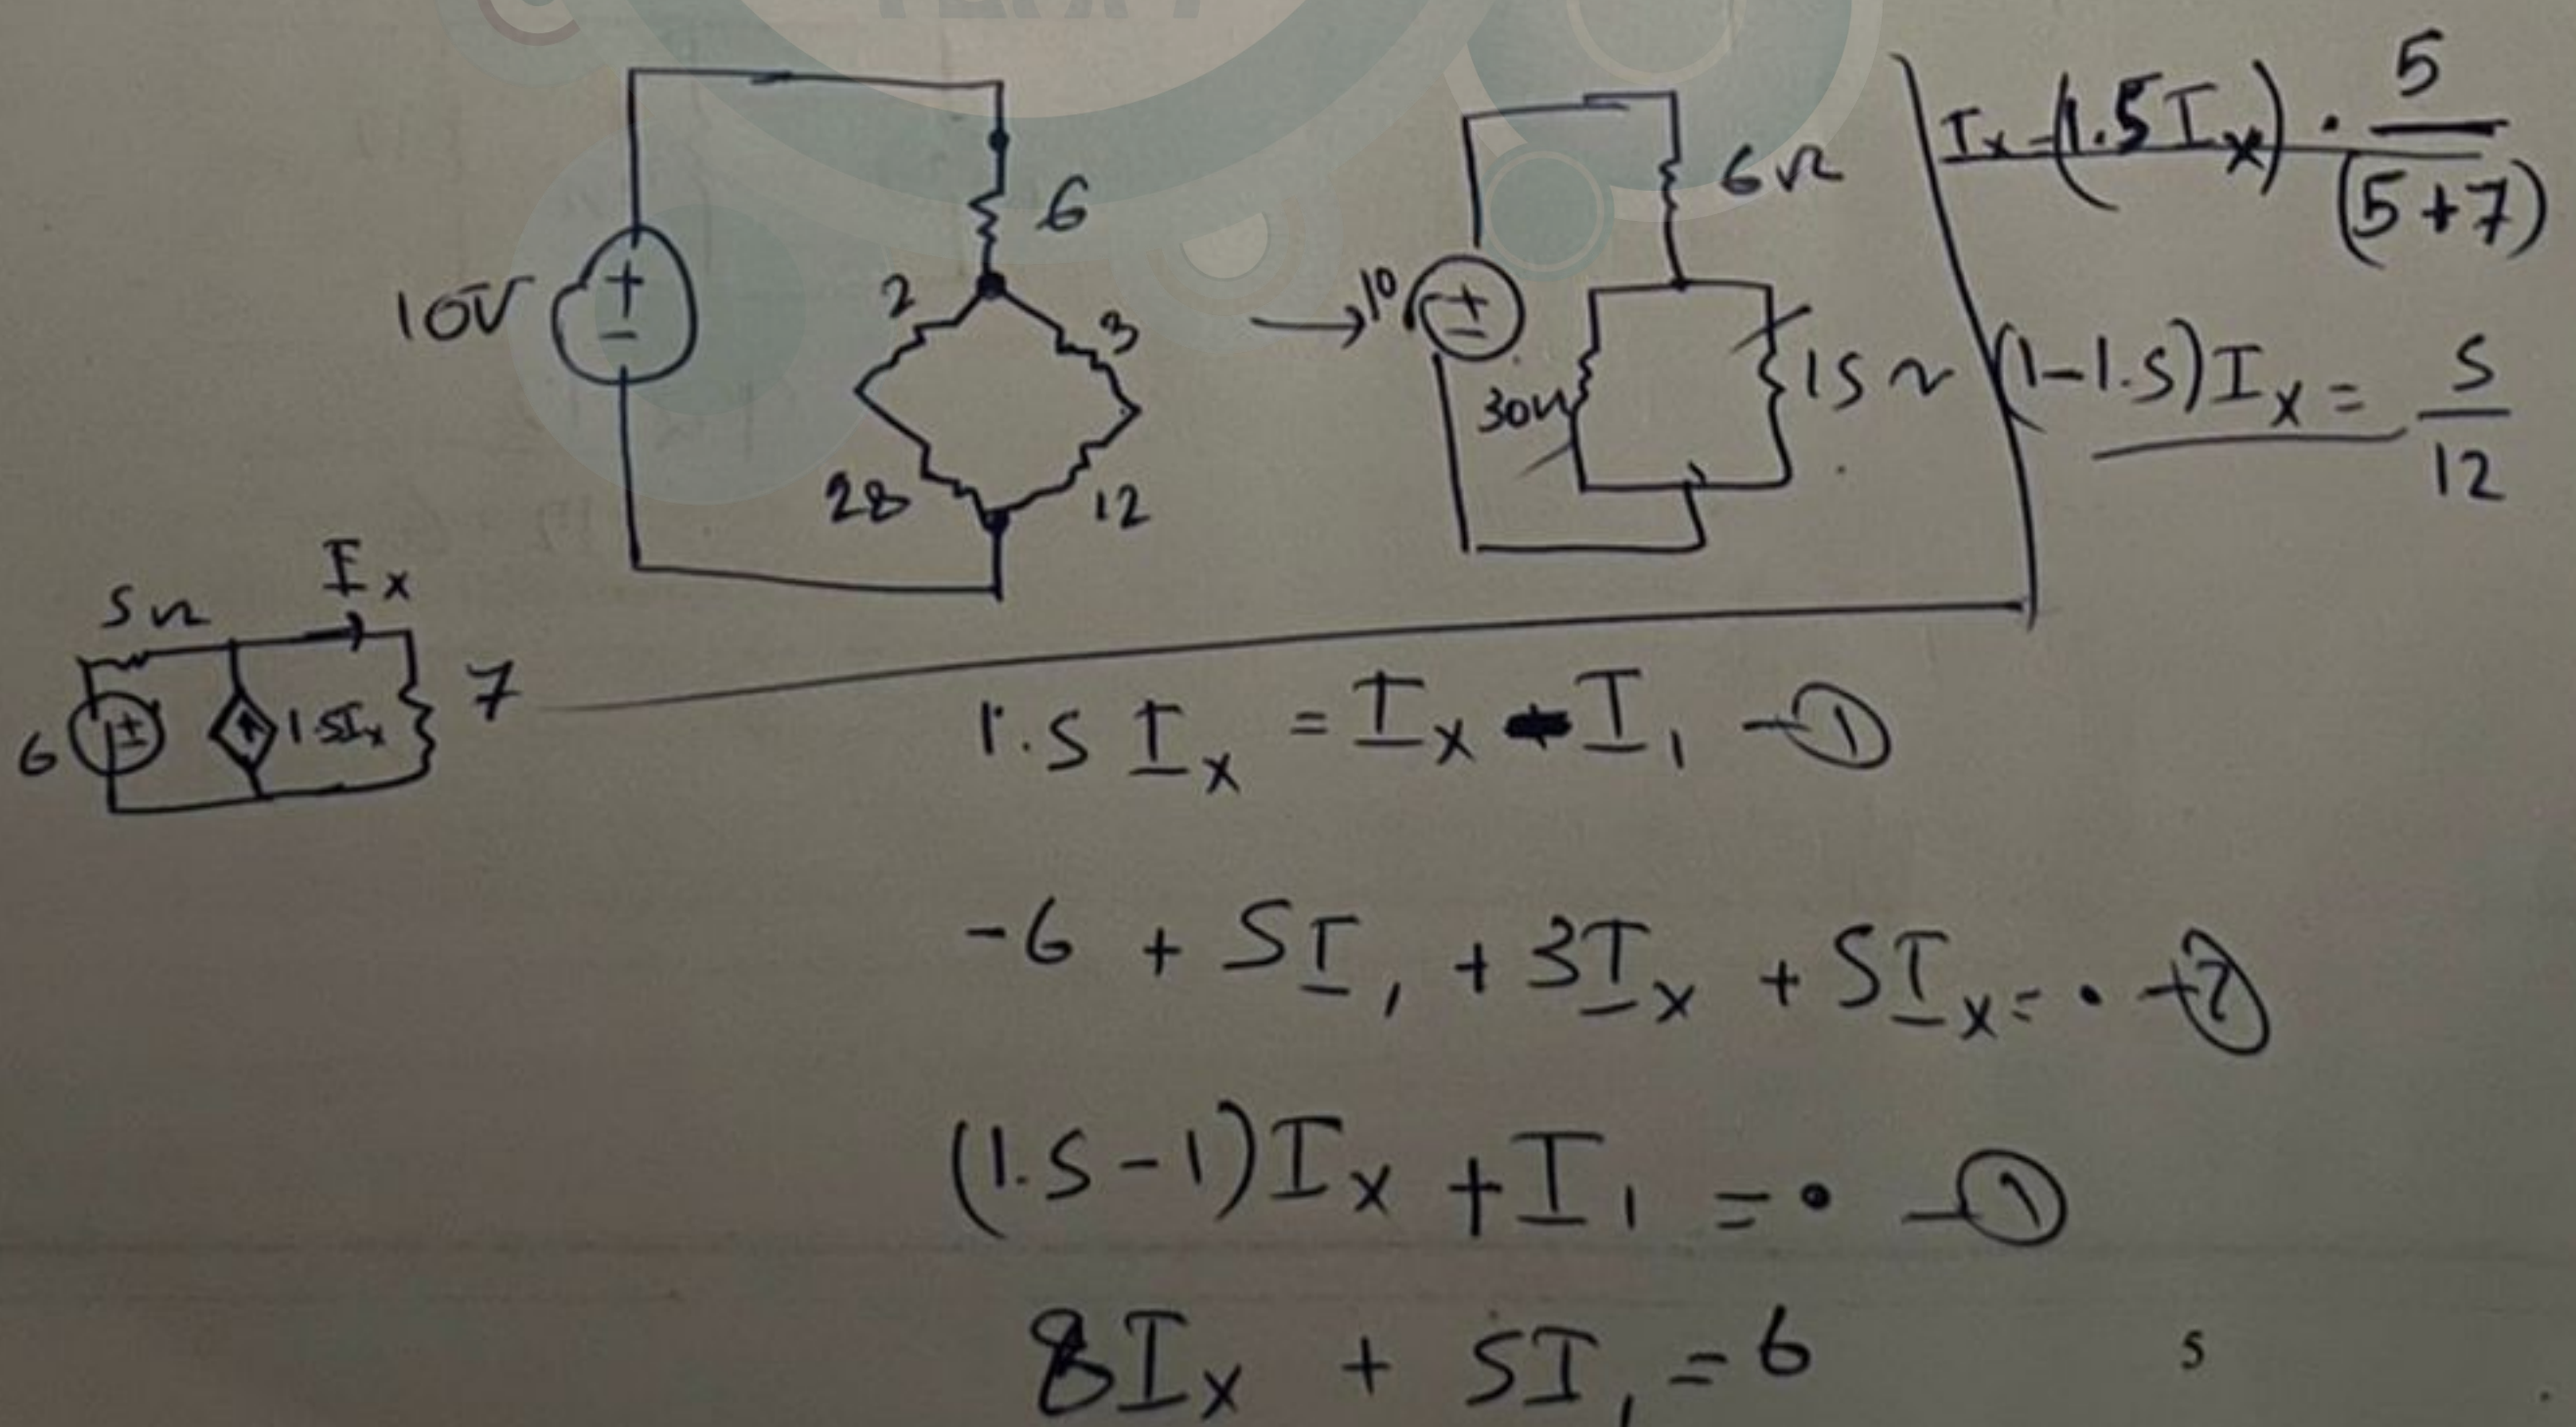 10V
6
2
3
28
12
→ 10
6Ω
30Ω
15Ω
Ix = (1.5Ix) · 5 / (5+7)
(1-1.5)Ix = 5 / 12
5Ω
Ix
6
1.5Ix
7
1.5 Ix = Ix - I1 —①
-6 + 5I1 + 3Ix + 5Ix = • —②
(1.5-1)Ix + I1 = • —①
8Ix + 5I1 = 6
5